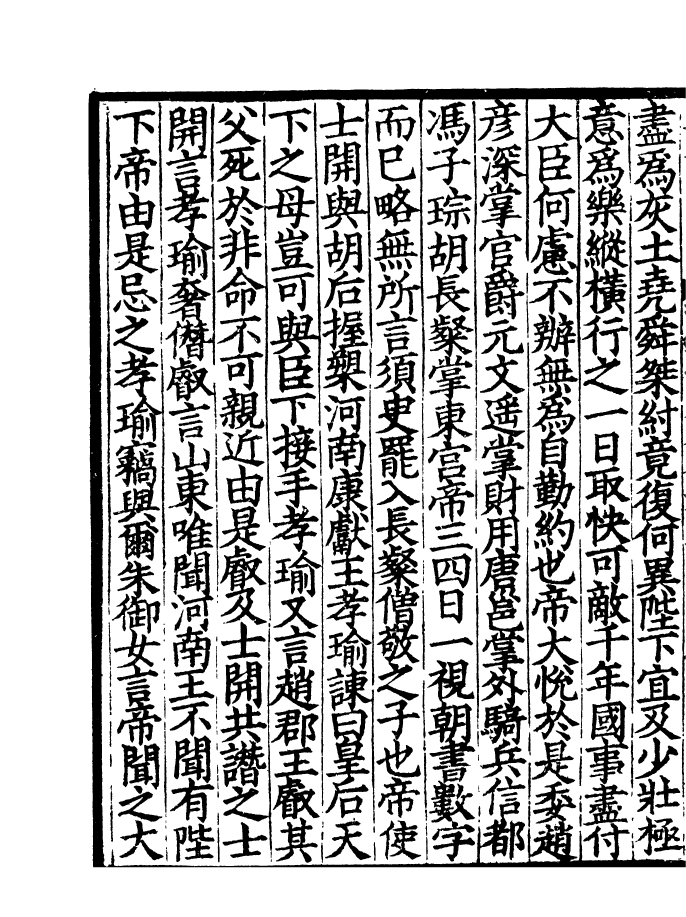 盡爲灰土堯舜桀紂竟復何異陛下宜及少壯極
意爲樂縱橫行之一日取快可敵千年國事盡付
大臣何慮不辦無為自勤約也帝大悅於是委趙
彦深掌官爵元文遥掌財用唐邕掌外騎兵信都
馮子琮胡長粲掌東宮帝三四日一視朝書數字
而已略無所言須臾罷入長粲僧敬之子也帝使
士開與胡后握槊河南康獻王孝瑜諫曰皇后天
下之母豈可與臣下接手孝瑜又言趙郡王叡其
父死於非命不可親近由是叡及士開共譖之士
開言孝瑜奢僭叡言山東唯聞河南王不聞有陛
下帝由是忌之孝瑜竊與爾朱御女言帝聞之大